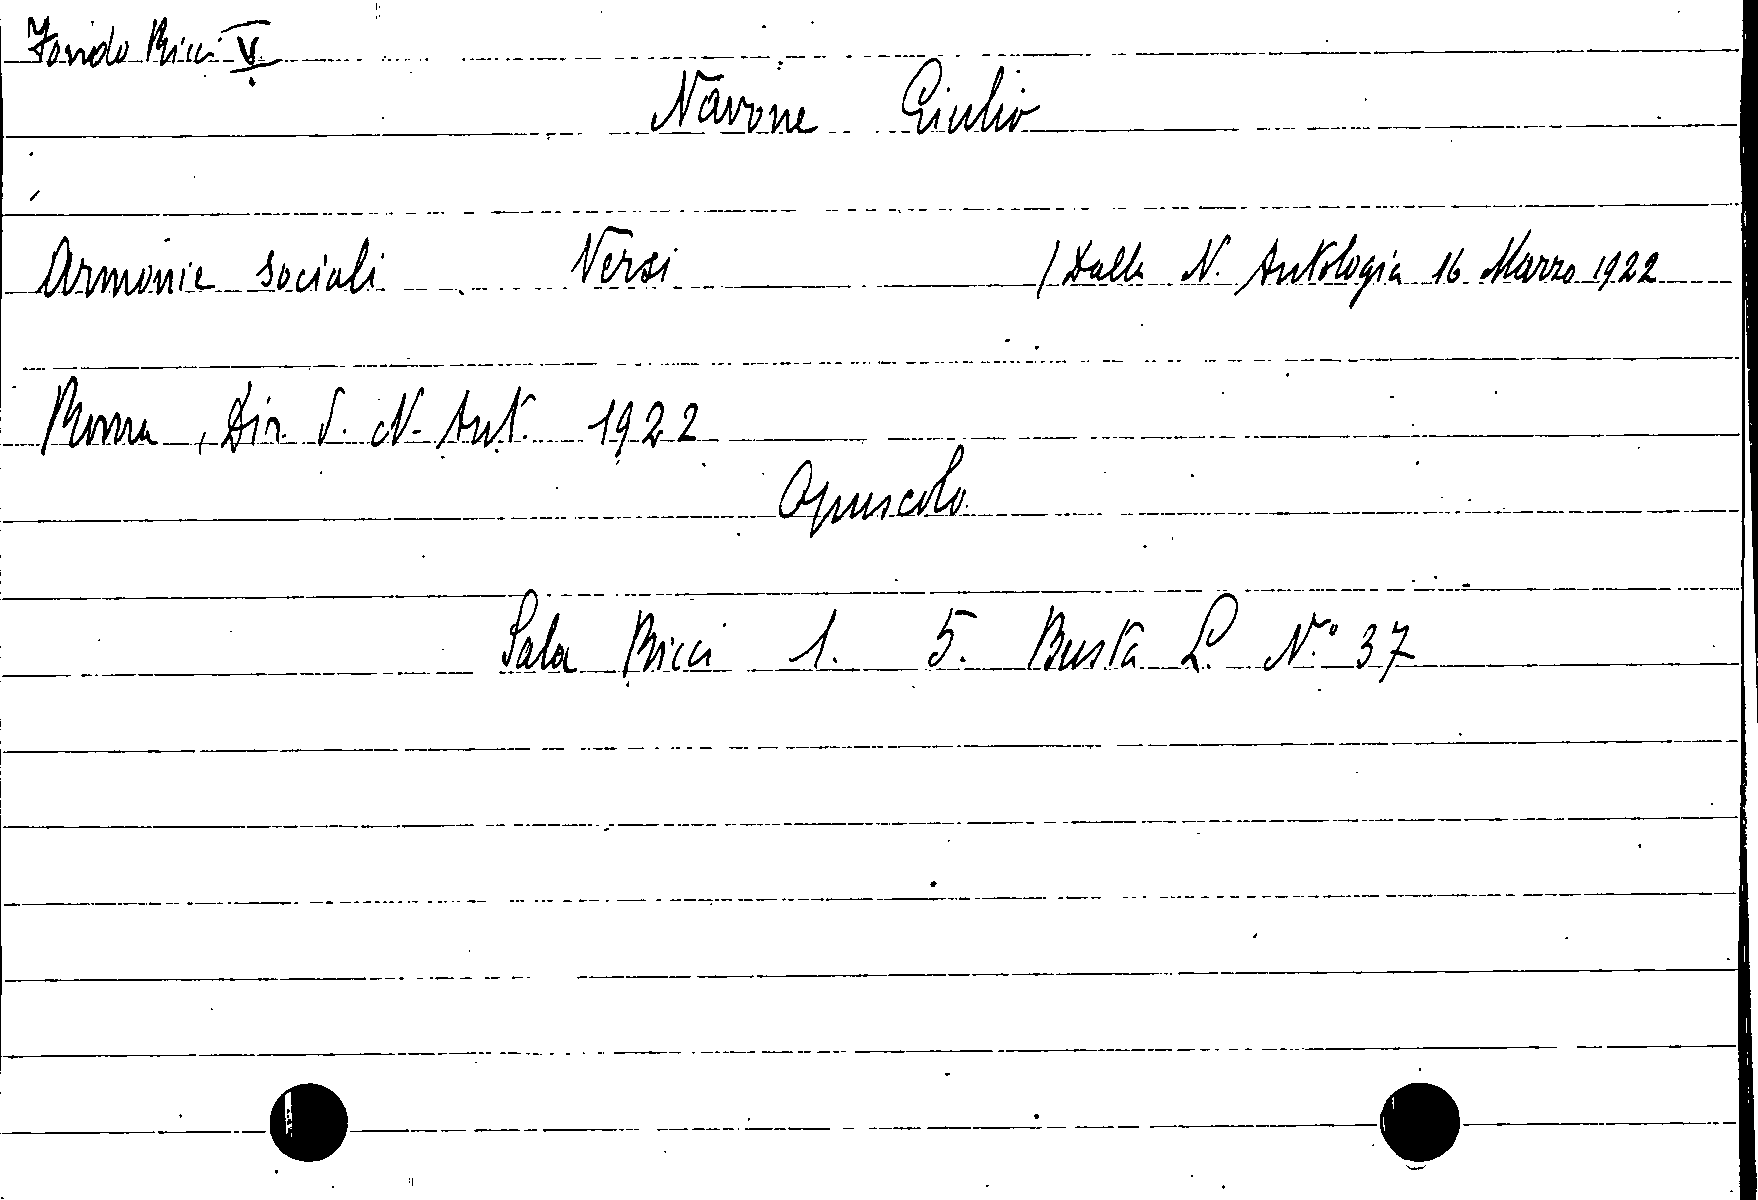 Fondo Ricci V
Navone Giulio
Armonie sociali Versi / Dalla N. Antologia 16 Marzo 1922
Roma, Dir. d. N. Ant. 1922
Opuscolo
Sala Ricci 1. 5. Busta L. N.° 37